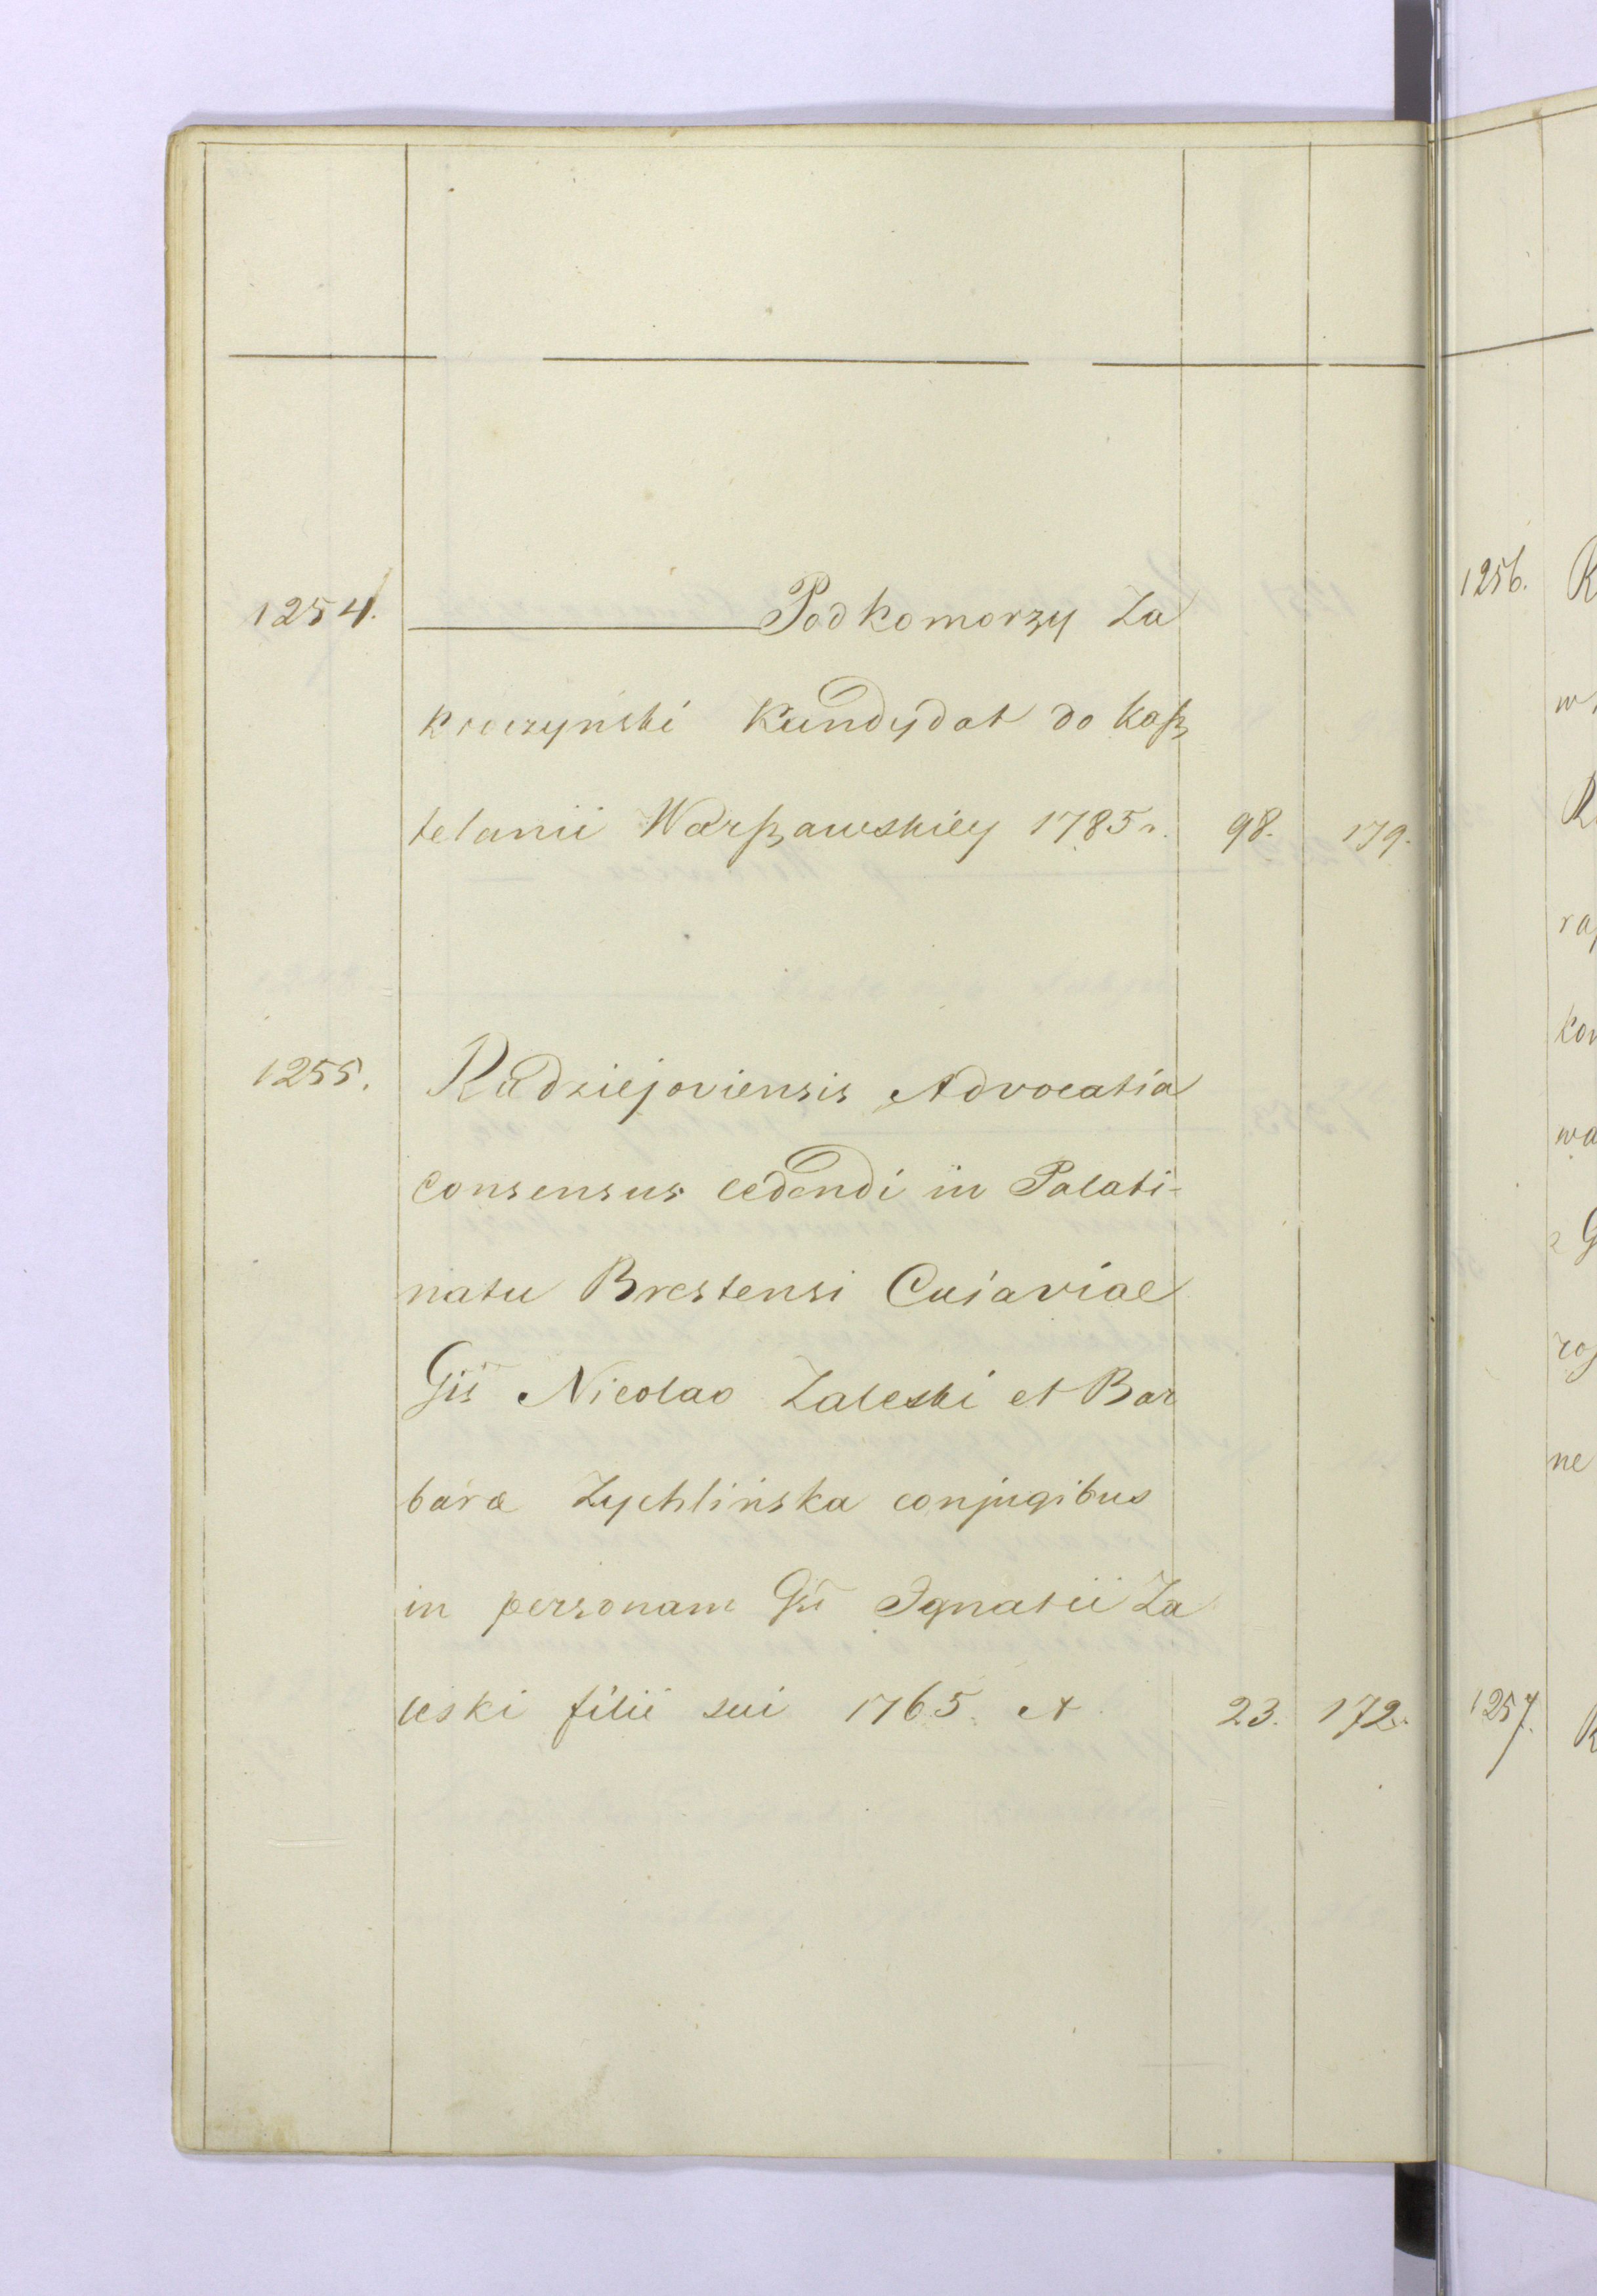 1254. Podkomorzy Za
kroczyński Kandydat do Kasz
telanii Warszawskiey 1785 r. 98. 179.
1255. Radziejoviensis Advocatia
Consensus cedendi in Palati-
natu Brestensi Cujaviae
Gis Nicolao Zaleski et Bar
bara Zychlińska conjugibus
in personam Gsi Ignatii Za
leski filii sui 1765. A 23. 172.
1256. R
R
ra
kon
wa
z G
ne
1257. R